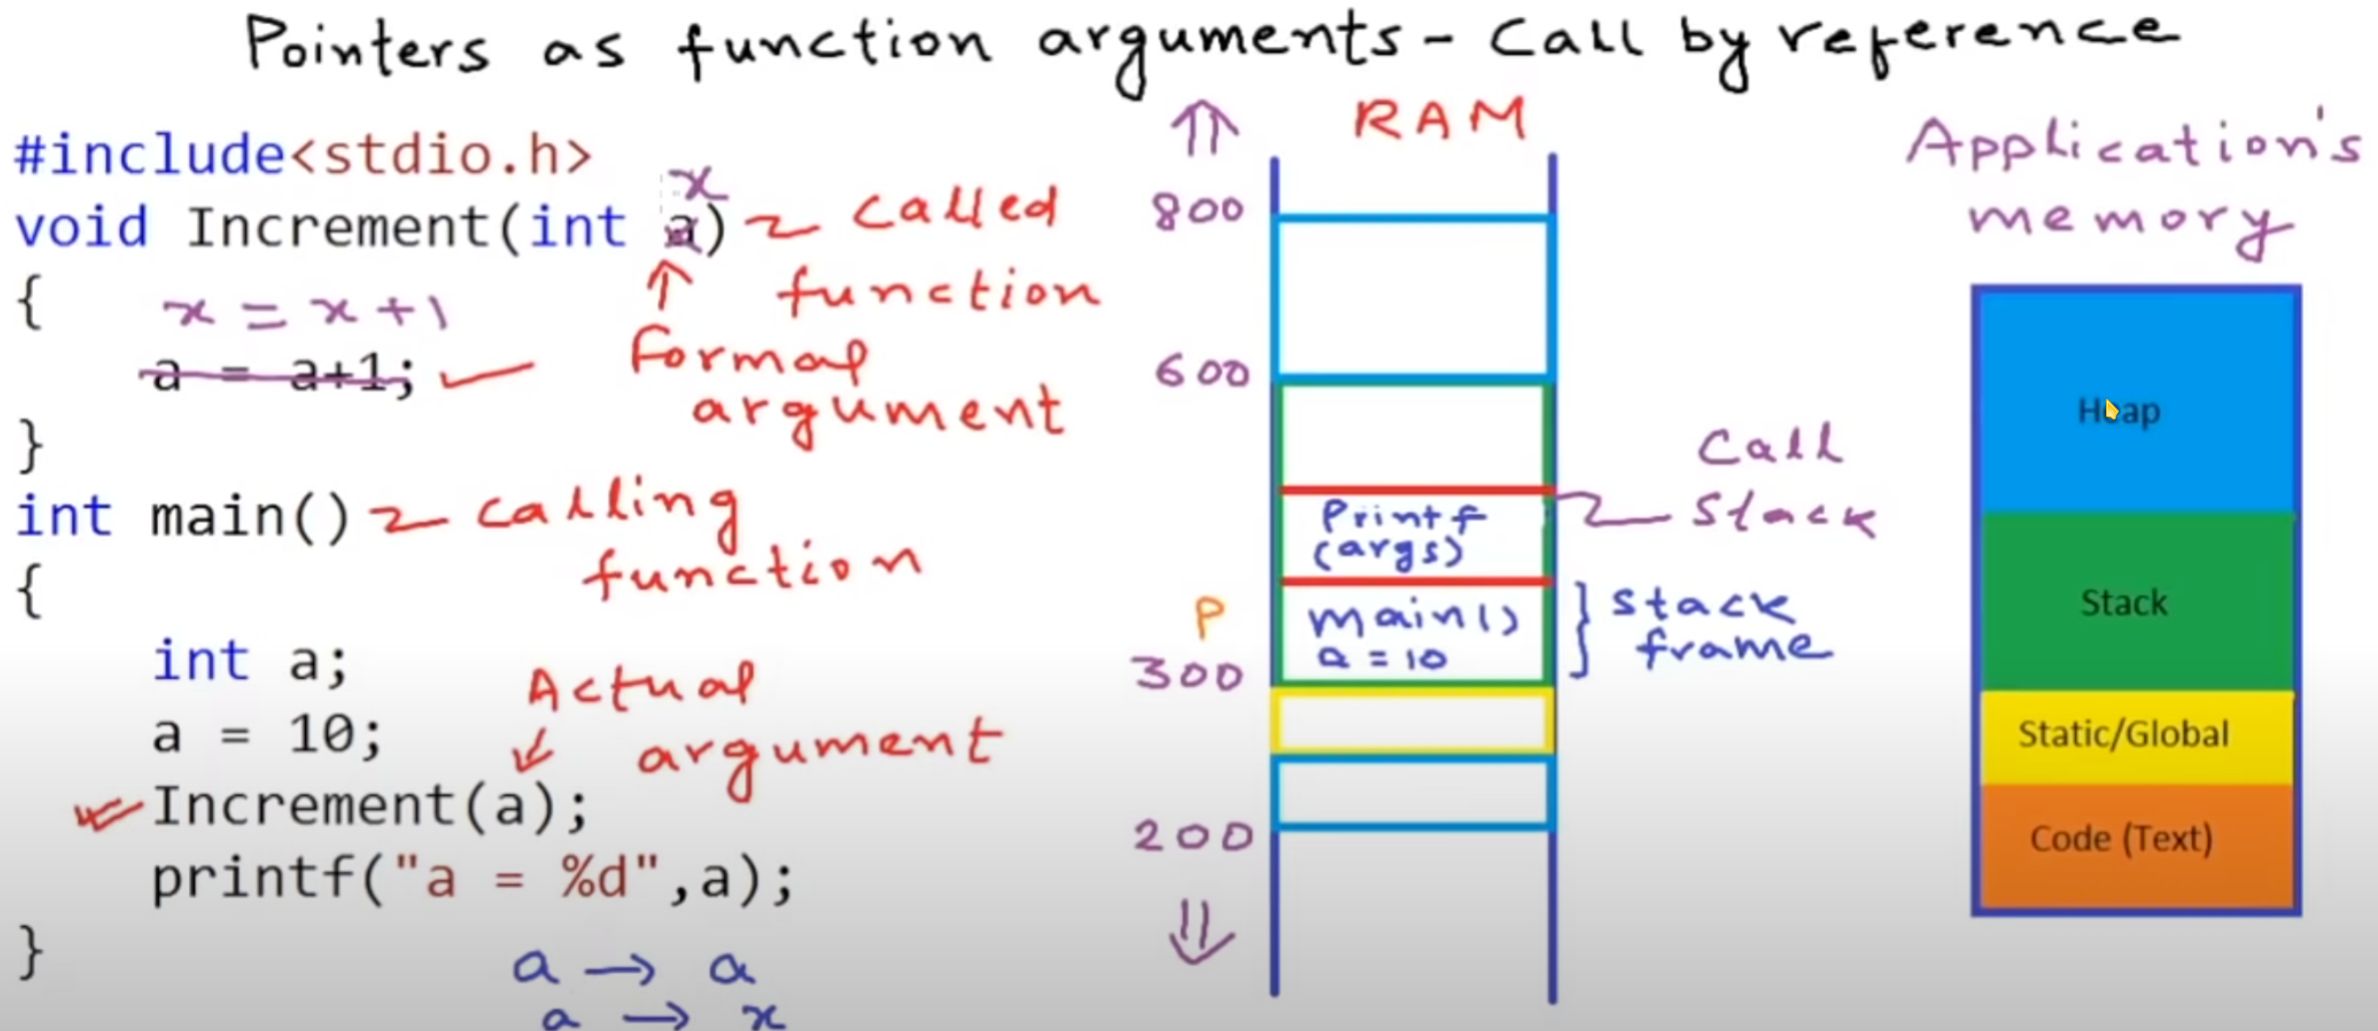 Pointers as function arguments - Call by reference
#include<stdio.h>
x
void Increment(int a)
called
function
{
x = x+1
a = a+1;
Formal
argument
}
int main()
calling
function
{
int a;
Actual
argument
a = 10;
Increment(a);
printf("a = %d",a);
}
a → a
a → x
RAM
800
600
Call
Stack
Printf
(args)
P
main()
a = 10
stack
frame
300
200
Application's
memory
Heap
Stack
Static/Global
Code (Text)